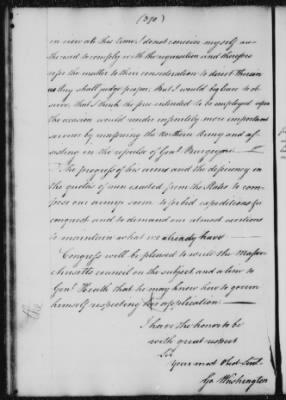 (390)
in view at this time I do not conceive myself au-
thorized to comply with the requisition and therefore
refer the matter to their consideration to direct therein
as they shall judge proper. But I would beg leave to ob-
serve, that I think the force intended to be employed upon
the occasion would render infinitely more important
services by reinforcing the Northern Army and as-
sisting in the repulse of Genl. Burgoyne
The progress of his arms and the deficiency in
the quotas of men exacted from the States to com-
pose our armies seem to forbid expeditions for
conquests and to demand our utmost exertions
to maintain what we already have
Congress will be pleased to write the Massa-
chusetts council on the subject and also to
Genl. Heath that he may know how to govern
himself respecting the application
I have the honor to be
with great respect
Sir
Your most Obed. Servt.
Go. Washington